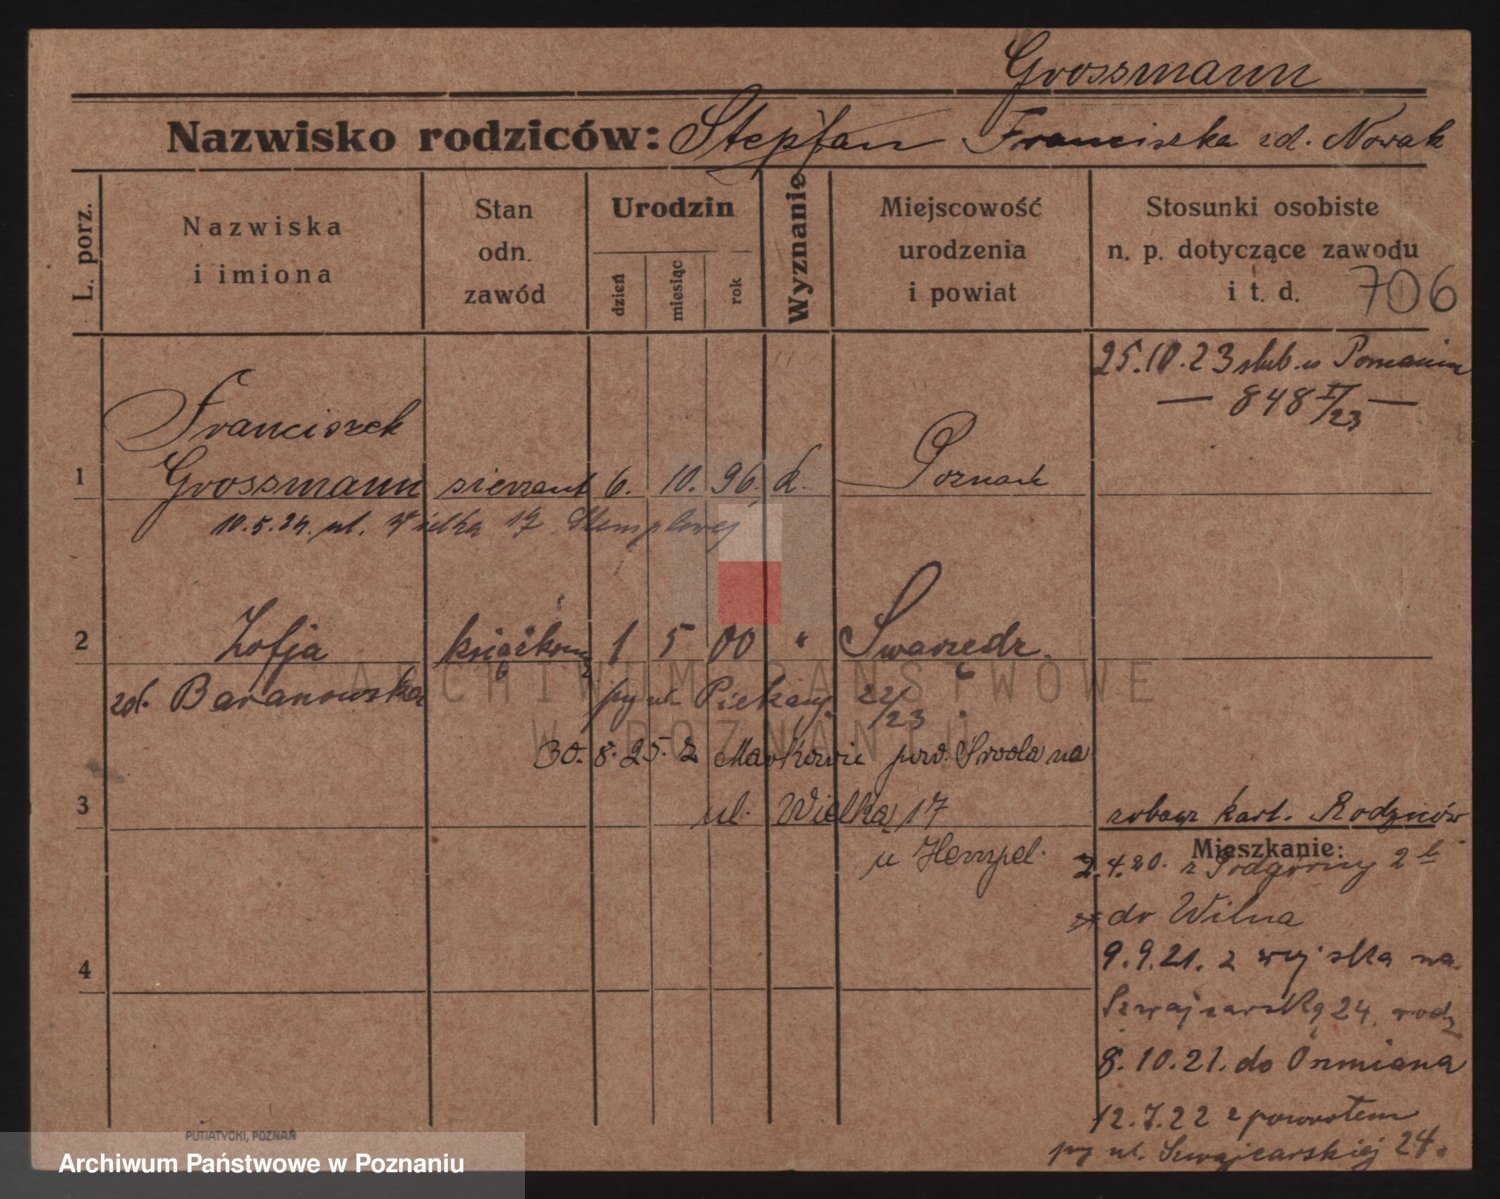 Grossmann
Nazwisko rodziców: Stephan Franciszka zd. Nowak
L. porz.
Nazwiska i imiona
Stan odn. zawód
Urodzin
dzień
miesiąc
rok
Wyznanie
Miejscowość urodzenia i powiat
Stosunki osobiste n. p. dotyczące zawodu i t. d.
706
25.10.23 ślub. w Poznaniu
— 848 I/23 —
Franciszek
1 Grossmann sierżant 6. 10. 96. k. Poznań
10.5.24. ul. Wielka 17
2 Zofja 1 5 00 " Swarzędz.
zd. Baranowska py ul. Piekary 22/23.
30.8.25. z Markowic pow. Środa na
3 ul. Wielką 17
u Hempel.
zobacz kart. Rodziców
Mieszkanie:
2.4.20. z Podgórny 2b
do Wilna
9.9.21. z wojska na
4
Szwajcarską 24. rodz
8.10.21. do Oszmiana
12.7.22 z powrotem
py ul. Szwajcarskiej 24.
PUTIATYCKI, POZNAŃ
ARCHIWUM PAŃSTWOWE
W POZNANIU
Archiwum Państwowe w Poznaniu